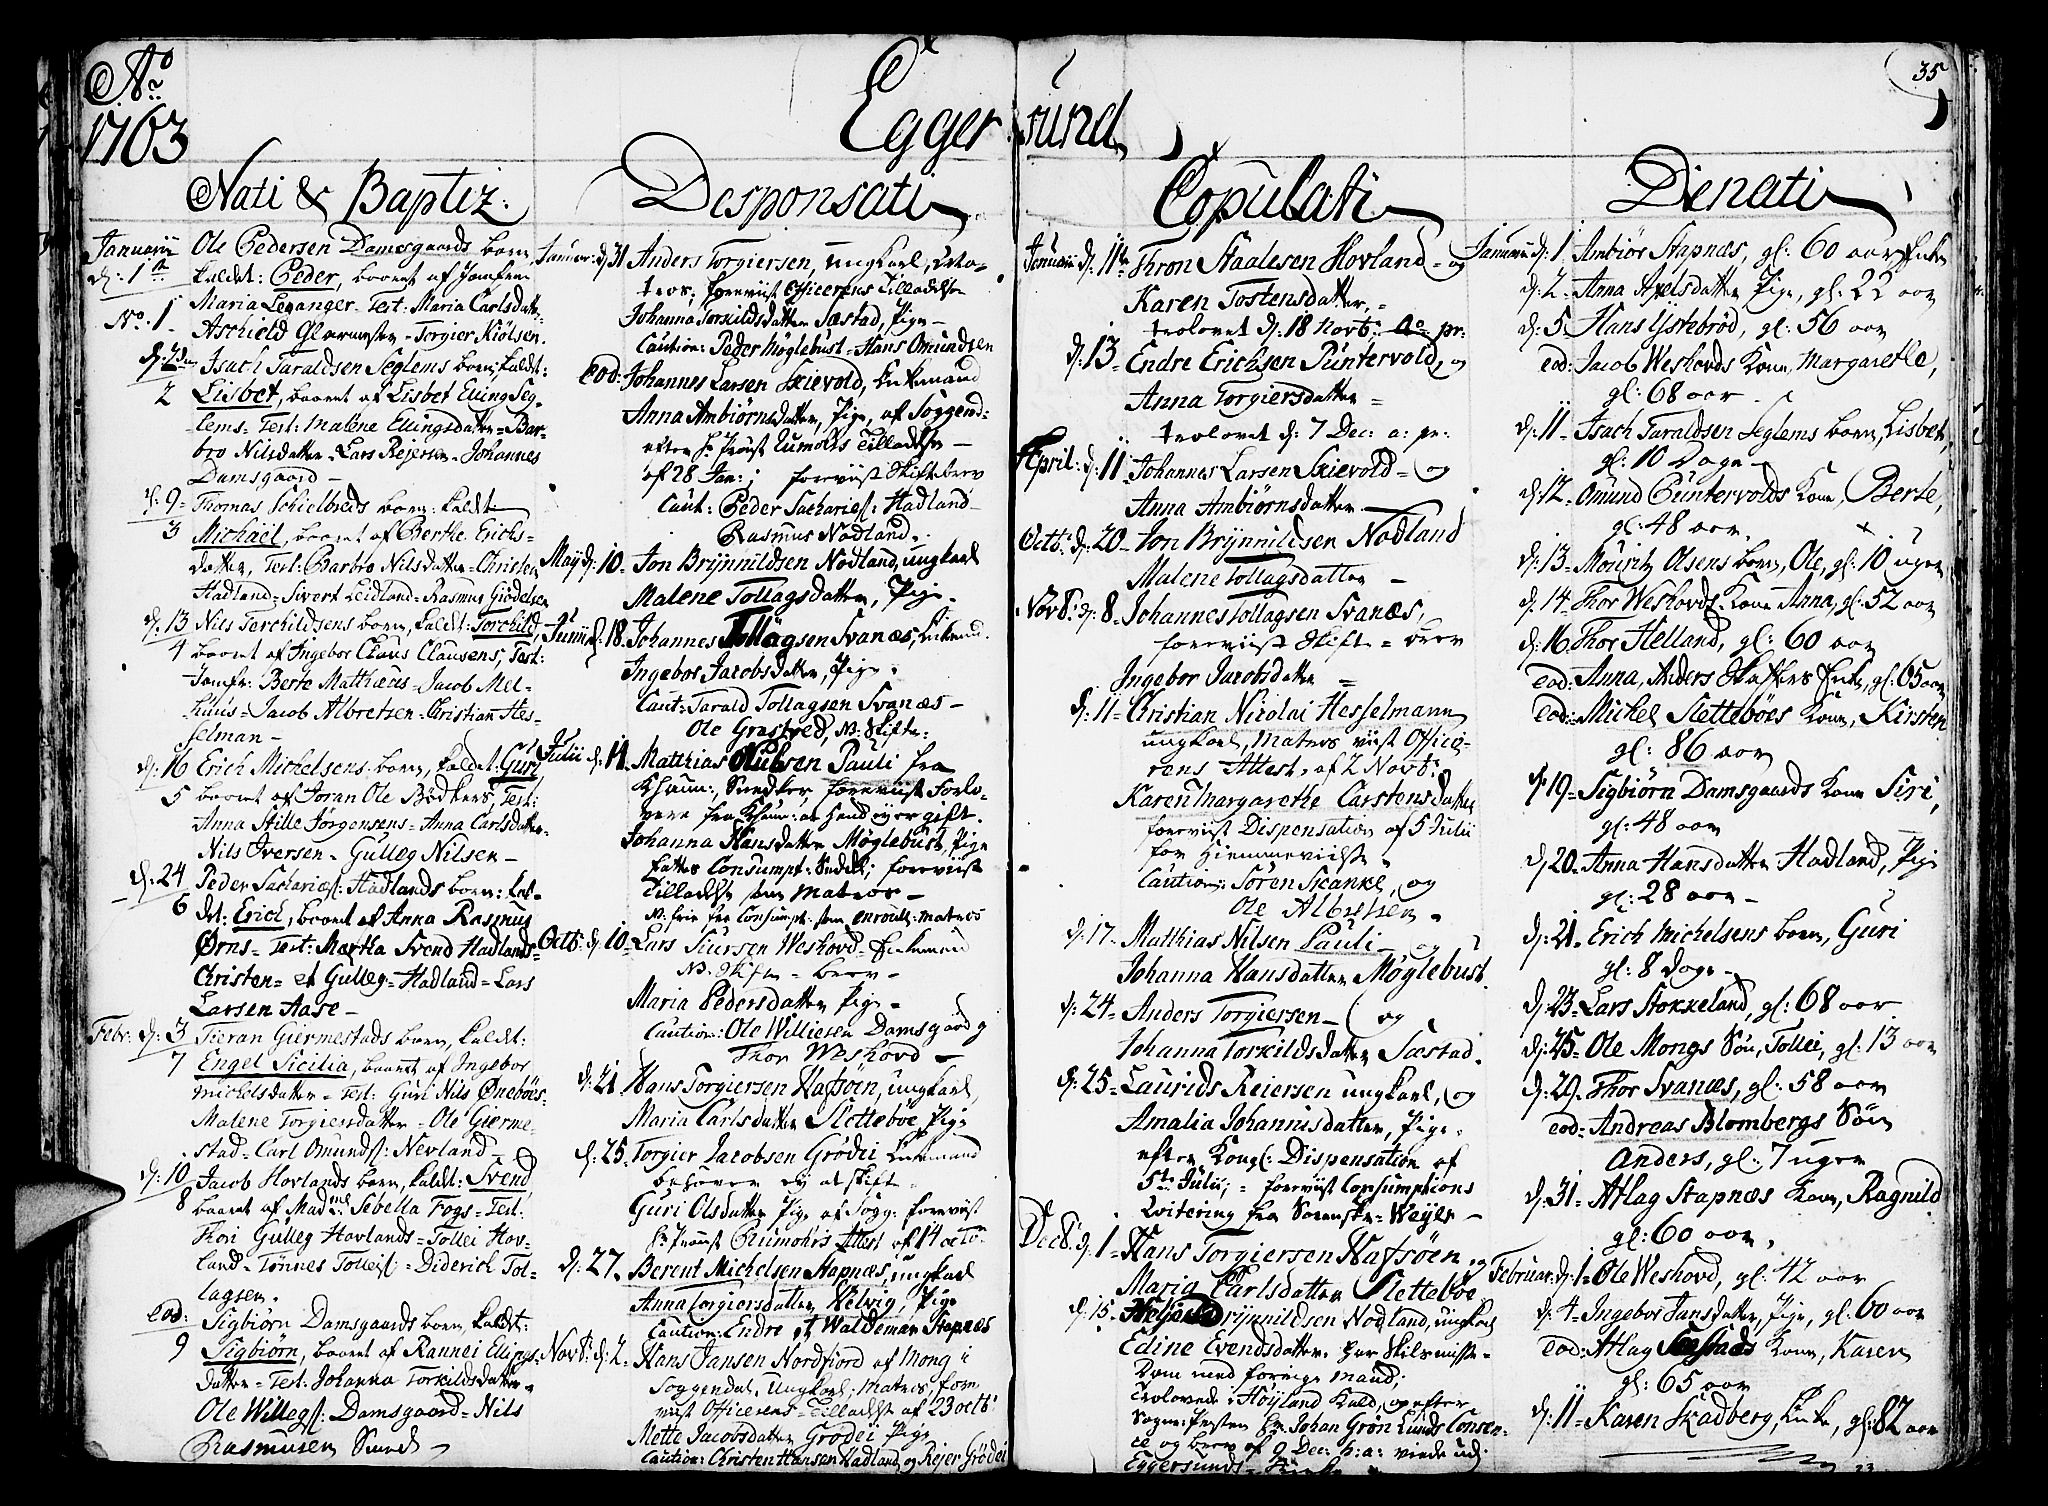 Aº
1763
Eggersund
35
Nati & Baptiz:
Januarii Ole Pedersen Damsgaards barn
d: 1te kaldt: Peder, baaret af Jomfrue
Maria Levanger – Test: Maria Carlsdatter
No. 1 Aschield Glarmester – Torgier Kiölsen.
d: 2den Isach Taraldsen Seglems barn, kaldt:
2 Lisbet, baaret af Lisbet Elling Seg-
lems – Test: Malene Ellingsdatter – Bar-
bro Nilsdatter – Lars Rejersen – Johannes
Damsgaard –
d: 9 – Thomas Schielbreds barn: kaldt
3 Michäel, baaret af Berthe Erichs-
datter, Test: Barbro Nilsdatter – Christen
Hadland – Sivert Leidland – Rasmus Giödelsen
d: 13 Nils Torchildsens barn, kaldt: Torchild,
4 baaret af Ingebor Claus Clausens, Test:
Jomfr: Berte Matthæus – Jacob Mel-
huus – Jacob Albretsen – Christian Hes-
selman –
d: 16 Erich Michelsens barn, kaldet: Guri
5 baaret af Joran Ole Bödkers, Test:
Anna Stille Jörgensens – Anna Carlsdatter
Nils Iversen – Gulleg Nilsen –
d: 24 Peder Sachariæs: Hadlands barn: kal-
6 det: Erich, baaret af Anna Rasmus
Örns – Test: Martha Svend Hadlands
Christen – et Gulleg – Hadland – Lars
Larsen Aase –
Febr: d: 3 Tieran Giermestads barn, kaldt:
7 Engel Sicilia, baaret af Ingebor
Michelsdatter – Test: Guri Nils Öneböes
Malene Torgiersdatter – Ole Gierme-
stad – Carl Omunds: Nevland –
d: 10 Jacob Hovlands barn, kaldt: Svend,
8 baaret af Madme Sibella Fogs – Test:
Thori Gulleg Hovlands – Tollei Hov-
land – Tönnes Tolleis: – Diderich Tol-
lagsen.
eod: Sigbiörn Damsgaards barn, kaldt:
9 Sigbiörn, baaret af Rannei Ellings
datter – Test: Johanna Torkildsdatter
Ole Willegs: Damsgaard – Nils
Rasmusen Sund –
Desponsati
Januar: d: 31 Anders Torgiersen, ungkarl,
forevist Officerens Tilladelse
Johanna Torkildsdatter Sæstad, Pige –
Caution: Peder Möglebust – Hans Omundsen
eod: Johannes Larsen Skievold, Enkemand
Anna Ambiörnsdatter, Pige, af Soggend:
efter Hr Provst Rumohrs Tilladelse –
af 28 Jan:; forevist Skiftebrev
Caut: Peder Sachariæs: Hadland
Rasmus Nodland.
May d: 10 – Jon Brynnildsen Nodland, ungkarl
Malene Tollagsdatter, Pige.
Junii d: 18 Johannes Tollagsen Svanæs, Enkemd.
Ingebor Jacobsdatter, Pige.
Caut: Tarald Tollagsen Svanæs –
Ole Grastved, NB. Skifte:
Julii d: 11 Matthias Nilsen Pauli fra
Khavn:, Snedker, forevist Forlo-
vere fra Khavn: at hand ey er gift.
Johanna Hansdatter Möglebust, Pige
fattes Consumpt: Seddel; forevist
Tilladelse som Matros –
NB. frie fra Consumpt: som enroull: Matros
Octb: d: 10 – Lars Siursen Weshovd – Enkemand
NB. Skifte – brev –
Maria Pedersdatter Pige –
Caution: Ole Williesen Damsgaard og
Thor Weshovd –
d: 21 Hans Torgiersen Hafsöen, ungkarl,
Maria Carlsdatter Sletteböe Pige
d: 25 – Torgier Jacobsen Grödei Enkemand
behöver ey at skifte.
Guri Olsdatter Pige af Sogg: forevist
Hr Provst Rumohrs Attest af 14 octo.
d: 27. Berent Michelsen Stapnæs, ungkarl
Anna Torgiersdatter Helvig, Pige
Caution: Endre et Waldemar Stapnæs
Novb: d: 2 – Hans Jansen Nordfiord af Mong i
Soggendal, ungkarl, Matros, fore
vist Officerens – Tilladelse af 23 octb:
Mette Jacobsdatter Grodei Pige
Caution: Christen Hansen Hadland og Rejer Grödei
Copulati
Januarii d: 11te Thron Staalesen Hovland – og
Karen Tostensdatter, –
trolovet d: 18 Novb: Aº pr:
d: 13 – Endre Erichsen Puntervold, og
Anna Torgiersdatter –
trolovet d: 7 Dec: a: pr:
April: d: 11 Johannes Larsen Skievold – og
Anna Ambiörnsdatter –
Octb: d: 20 – Jon Brynnildsen Nodland
Malene Tollagsdatter –
Novb: d: 8 – Johannes Tollagsen Svanæs,
forevist Skifte – brev
Ingebor Jacobsdatter –
d: 11 – Christian Nicolai Hesselmann
ungkarl, Matros viist Offici-
rens Attest, af 2 Novb:
Karen Margarethe Carstensdatter
forevist Dispensation af 5 Julii
for Hiemmevielse.
Caution: Sören Skanke, og
Ole Albretsen.
d: 17. Matthias Nilsen Pauli – og
Johanna Hansdatter Möglebust.
d: 24 – Anders Torgiersen – og
Johanna Torkildsdatter Sæstad.
d: 25 – Laurids Reiersen ungkarl, og
Amalia Johannisdatter, Pige.
efter Kongl: Dispensation af
5te Julii; – forevist Consumptions
Qvitering fra Sorenskr: Weyer –
Decb: d: 1 – Hans Torgiersen Hafsöen og
Maria Carlsdatter Sletteböe
d: 15 – Brynnildsen Nodland, ungkarl
Edine Evendsdatter. har Skilsmisse-
Dom med forrige Mand;
Trolovede i Höyland Kald, og efter
Sogne: Presten Hr. Johan Grön Lunds Consen-
ce og brev af 9 Dec: h: a: viede udi
Eggersunds – Kirke
Denati
Januarii d: 1 Ambiör Stapnæs, gl: 60 aar, Enke
d: 2 – Anna Axelsdatter Pige, gl: 22 aar
d: 5 Hans Ystebröd, gl: 56 aar
eod: Jacob Weshovds Kone, Margarethe,
gl: 68 aar.
d: 11 – Isach Taraldsen Seglems barn, Lisbet,
gl: 10 Dage –
d: 12 – Omund Puntervolds Kone, Berte,
gl: 48 aar.
d: 13 – Mouritz Olsens barn, Ole, gl: 10 uger
d: 14 – Thor Weshovds Kone Anna, gl: 52 aar
d: 16 Thor Helland, gl: 60 aar
eod: Anna, Anders Enke, gl: 65 aar
eod: Michel Sletteböes Kone, Kirsten
gl: 86 aar
d: 19 – Sigbiörn Damsgaards Kone Siri,
gl: 48 aar
d: 20 – Anna Hansdatter Hadland, Pige
gl: 28 aar –
d: 21 – Erich Michelsens barn, Guri
gl: 8 dage –
d: 23 – Lars Stokkeland, gl: 68 aar.
d: 25 – Ole Mongs Sön, Tollei, gl: 13 aar
d: 29 – Thor Svanæs, gl: 58 aar
eod: Andreas Blombergs Sön
Anders, gl: 7 uger
d: 31 – Atlag Stapnæs Kone, Ragnild
gl: 60 aar.
Februar: d: 1 – Ole Weshovd, gl: 42 aar
d: 4 – Ingebor Jansdatter, Pige, gl: 60 aar
eod: Atlag Sæstads Kone, Karen
gl: 65 aar
d: 11 – Karen Skadberg, Enke, gl: 82 aar